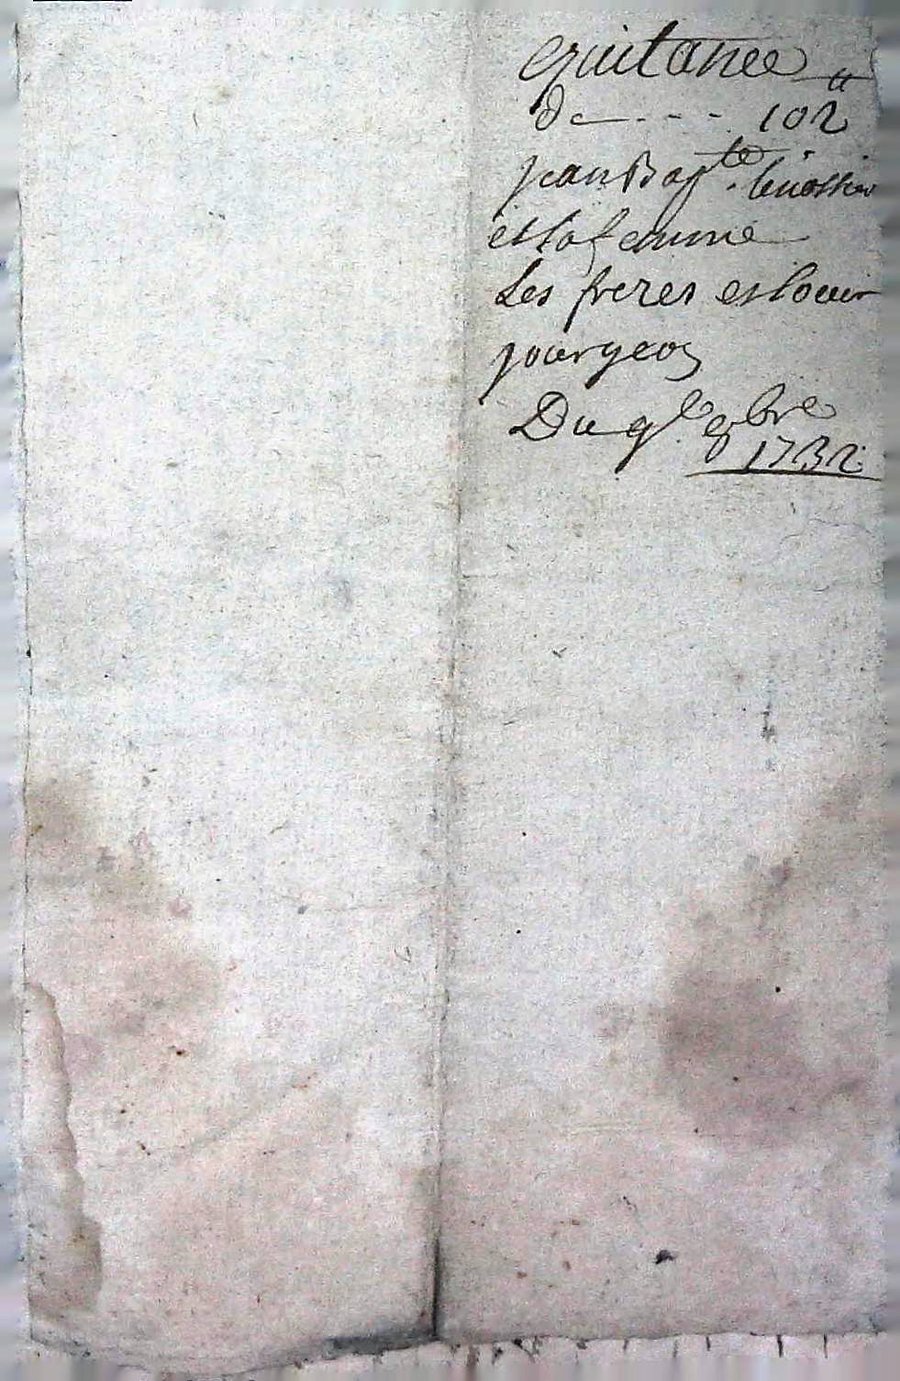 quitance
de - - - 102 ₶
jean Bapte.
et sa femme
Les freres et soeur
jourgeos
Du 9e. 8bre
1732